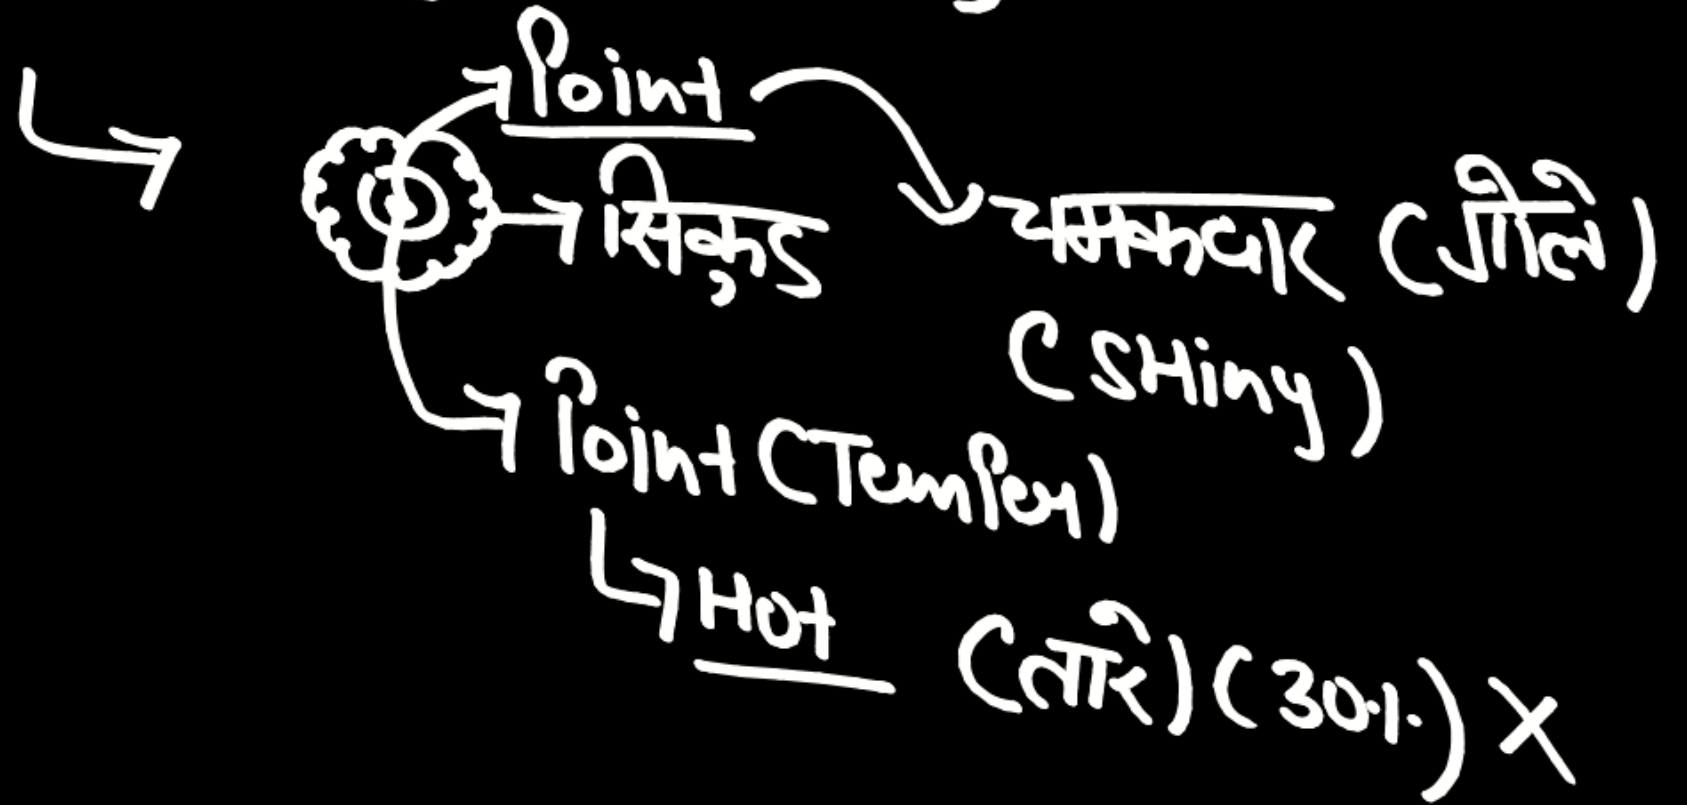 Point
सिकुड चमकदार (गोले)
(SHiny)
Point (Temper)
Hot (तारे) (30%) X